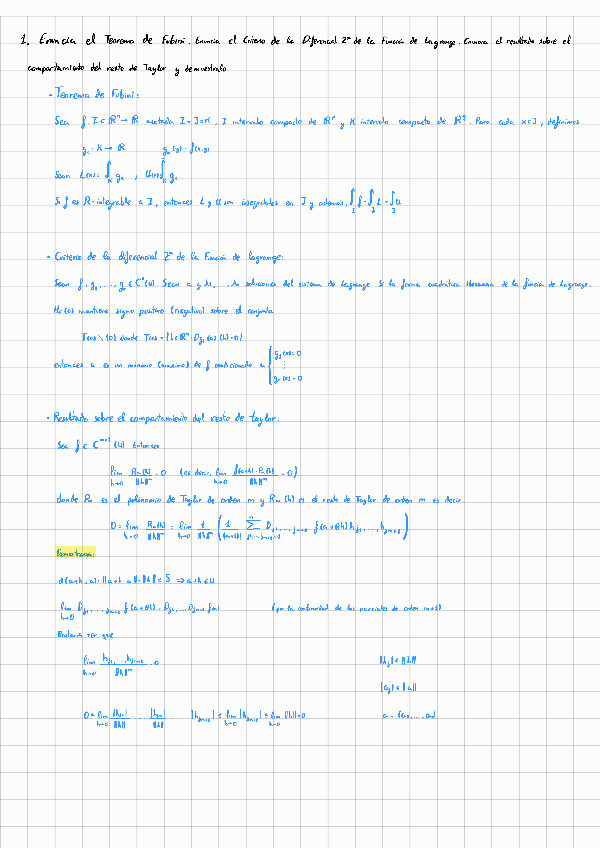 1. Enuncia el Teorema de Fubini. Enuncia el Criterio de la Diferencial 2ª de la Función de Lagrange. Enuncia el resultado sobre el
comportamiento del resto de Taylor y demuéstralo
• Teorema de Fubini:
Sea f: I ⊂ ℝⁿ → ℝ acotada I = J×K, J intervalo compacto de ℝᵖ y K intervalo compacto de ℝ^q. Para cada x∈J, definimos
gₓ: K → ℝ gₓ(y) = f(x,y)
Sean L(x) = ∫_K gₓ , U(x) = ∫_K gₓ
Si f es R-integrable a I, entonces L y U son integrables en J y además, ∫_I f = ∫_J L = ∫_J U
• Criterio de la diferencial 2ª de la Función de Lagrange:
Sean f, g₁, ..., gᵣ ∈ C²(U) Sean a y λ₁, ..., λᵣ soluciones del sistema de Lagrange Si la forma cuadrática Hessiana de la función de Lagrange,
H_L(a) mantiene signo positivo (negativo) sobre el conjunto
T(a)\{0} donde T(a) = {h∈ℝⁿ: Dgⱼ(a)(h)=0}
entonces a es un mínimo (máximo) de f condicionado a { g₁(x)=0 ⋮ gᵣ(x)=0
• Resultado sobre el comportamiento del resto de taylor:
Sea f ∈ C^{m+1}(U) Entonces
lim_{h→0} Rₘ(h)/‖h‖ᵐ = 0 (es decir, lim_{h→0} f(a+h)-Pₘ(h)/‖h‖ᵐ = 0)
donde Pₘ es el polinomio de Taylor de orden m y Rₘ(h) es el resto de Taylor de orden m es decir
0 = lim_{h→0} Rₘ(h)/‖h‖ᵐ = lim_{h→0} 1/‖h‖ᵐ ( 1/(m+1)! Σ D_{j1,...,jm+1} f(a+θh) h_{j1}, ..., h_{jm+1} )
Demostración:
d(a+h, a) = ‖a+h-a‖ = ‖h‖ < δ ⇒ a+h∈U
lim_{h→0} D_{j1,...,jm+1} f(a+θh) = D_{j1,...,jm+1} f(a) (por la continuidad de las parciales de orden m+1)
Bastaría ver que
lim_{h→0} h_{j1}...h_{jm+1}/‖h‖ᵐ = 0 |hⱼ| ≤ ‖h‖
|aⱼ| ≤ ‖a‖
0 ≤ lim_{h→0} |h_{j1}|/‖h‖ ... |h_{jm}|/‖h‖ |h_{jm+1}| ≤ lim_{h→0} |h_{jm+1}| ≤ lim_{h→0} ‖h‖ = 0 a = (a₁, ..., aₙ)